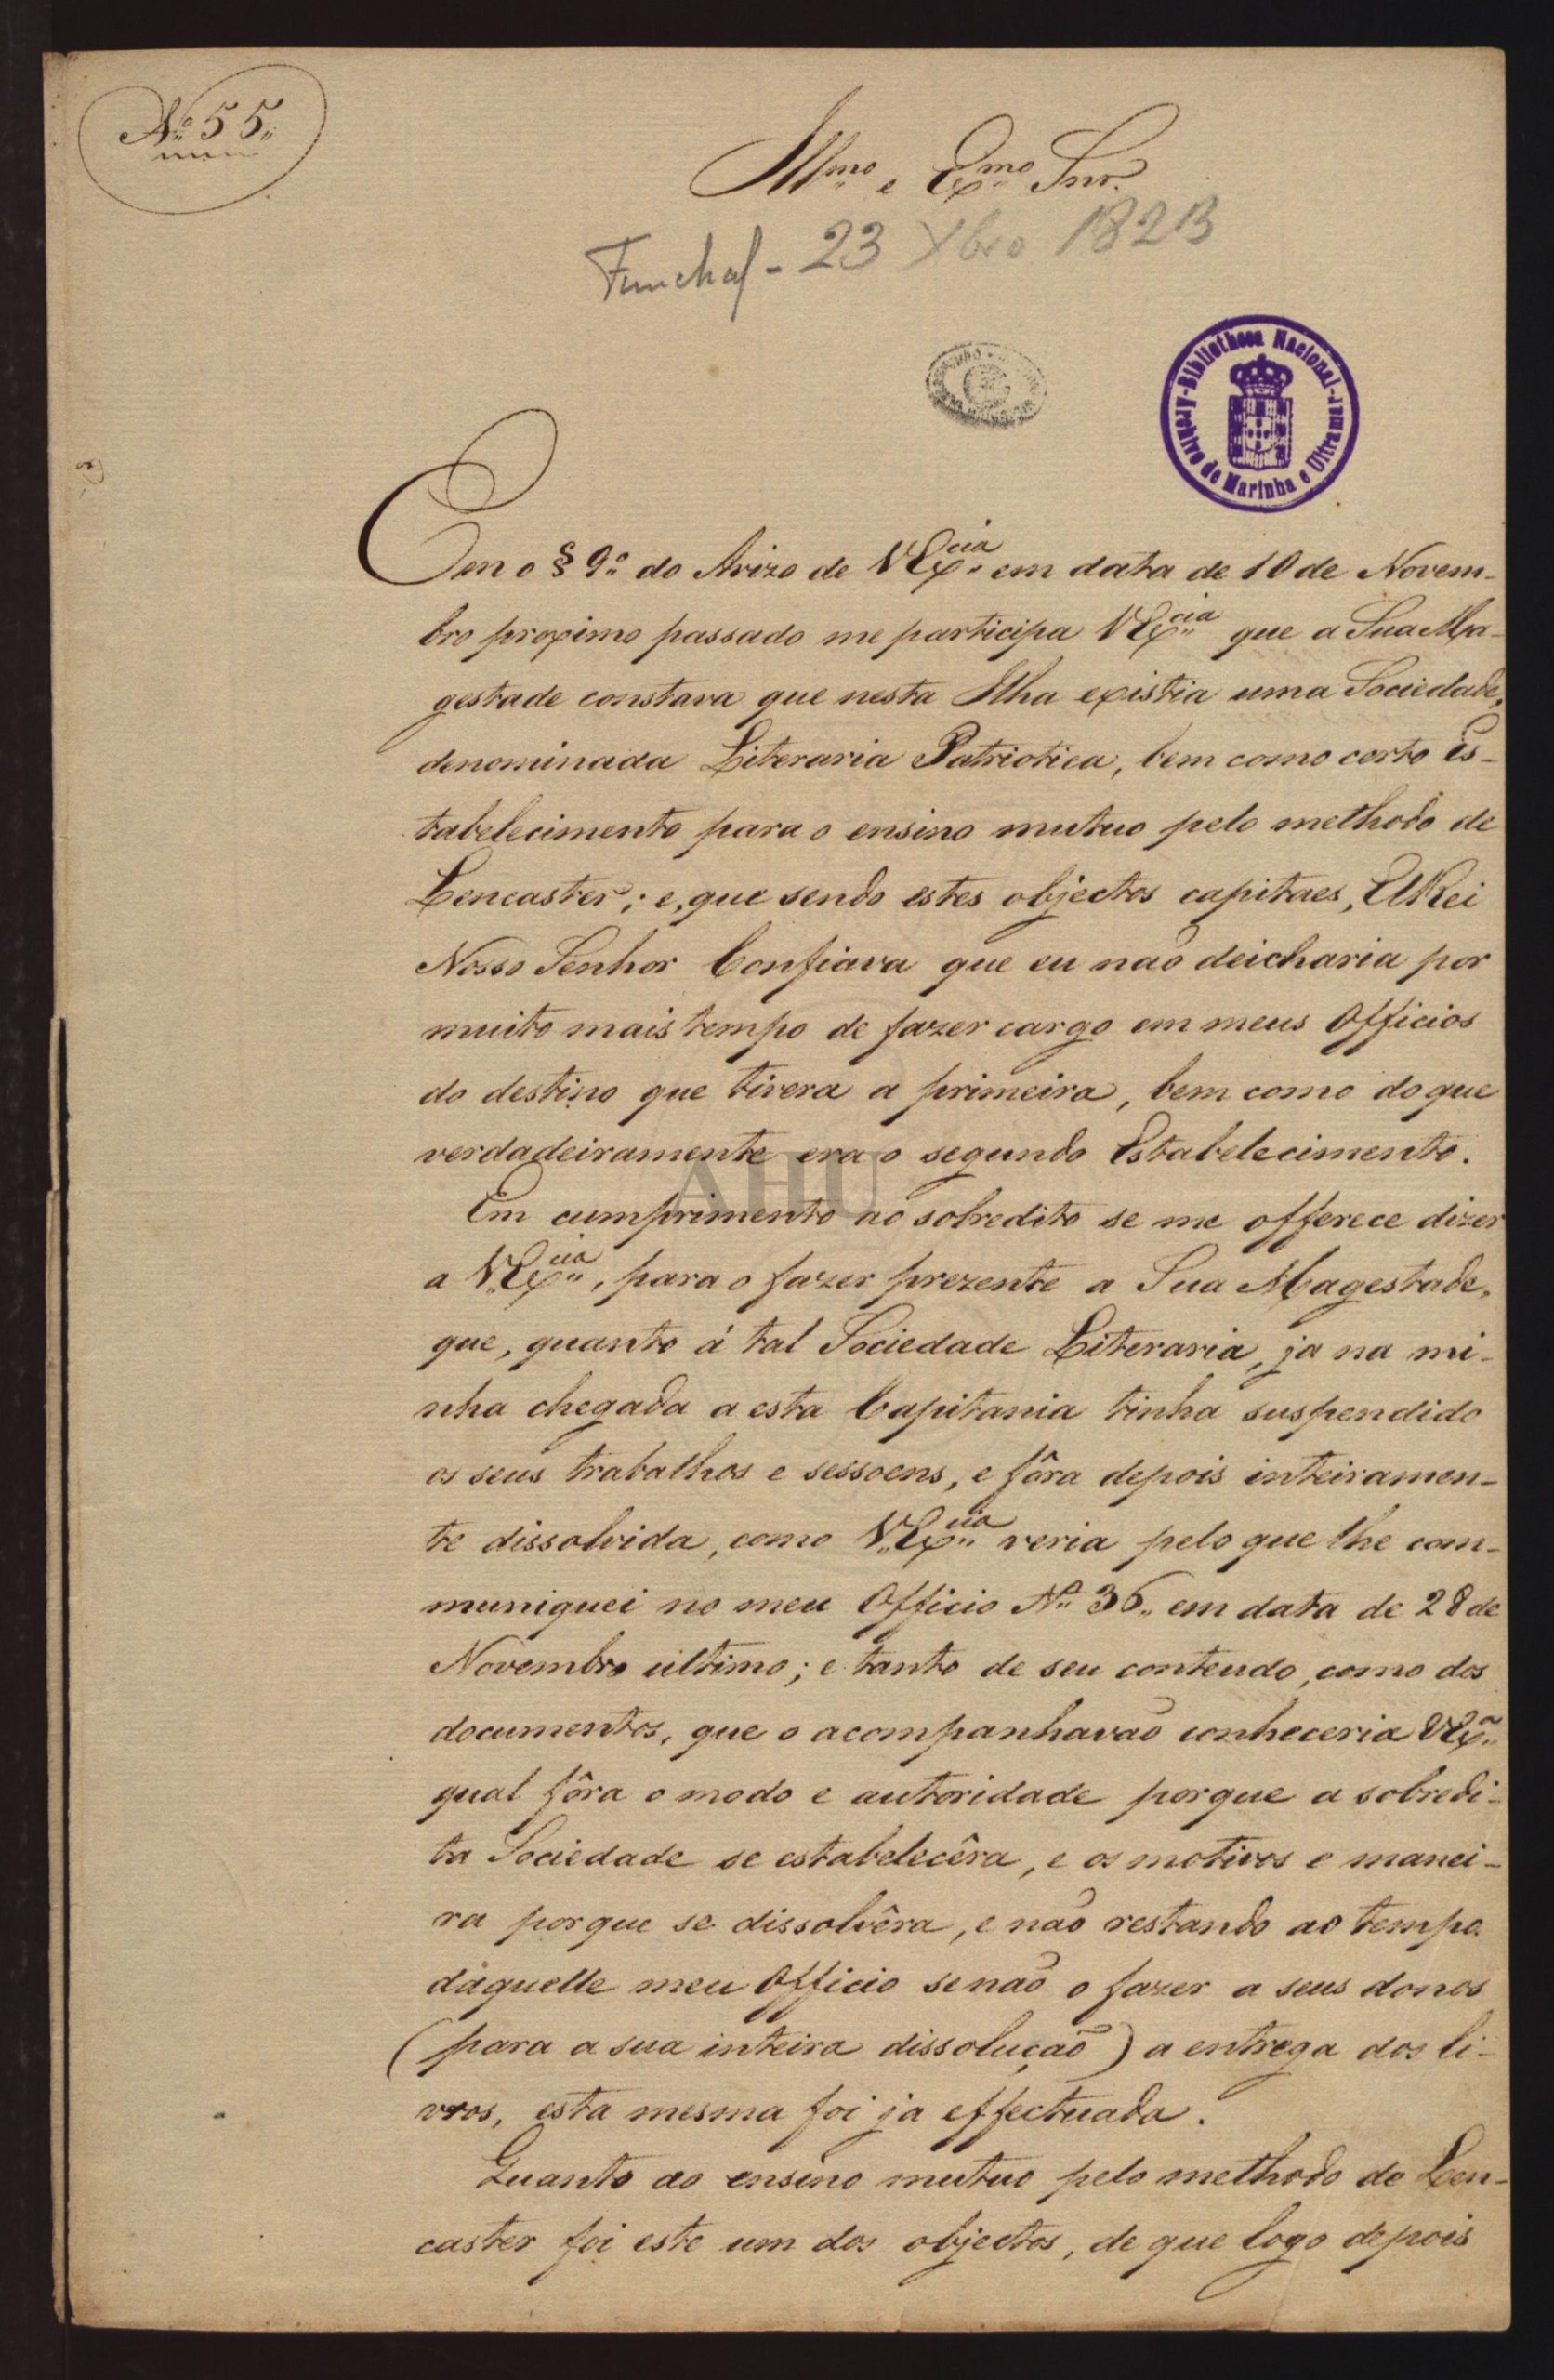 Nº 55
Illmo e Exmo Snr.
Funchal - 23 Xbro 1823
Archivo de Marinha e Ultramar - Bibliotheca Nacional
Em o § 9º do Avizo de VExcia em data de 10 de Novem-
bro proximo passado me participa VExcia que a Sua Ma-
gestade constava que nesta Ilha existia uma Sociedade,
denominada Literaria Patriotica, bem como certo Es-
tabelecimento para o ensino mutuo pelo methodo de
Lencaster; e, que sendo estes objectos capitaes, ElRei
Nosso Senhor Confiava que eu não deicharia por
muito mais tempo de fazer cargo em meus Officios
do destino que tivera a primeira, bem como do que
verdadeiramente era o segundo Estabelecimento.
AHU
Em cumprimento ao sobredito se me offerece dizer
a VExcia, para o fazer prezente a Sua Magestade,
que, quanto á tal Sociedade Literaria, ja na mi-
nha chegada a esta Capitania tinha suspendido
os seus trabalhos e sessoens, e fôra depois inteiramen-
te dissolvida, como V.Excia veria pelo que lhe com-
muniquei no meu Officio Nº 36 em data de 28 de
Novembro ultimo; e tanto de seu contendo, como dos
documentos, que o acompanhavão conheceria VExa
qual fôra o modo e autoridade porque a sobredi-
ta Sociedade se estabelecêra, e os motivos e manei-
ra porque se dissolvêra, e não restando ao tempo
daquelle meu Officio senão o fazer a seus donos
(para a sua inteira dissolução) a entrega dos li-
vros, esta mesma foi ja effectuada.
Quanto ao ensino mutuo pelo methodo de Len-
caster foi este um dos objectos, de que logo depois